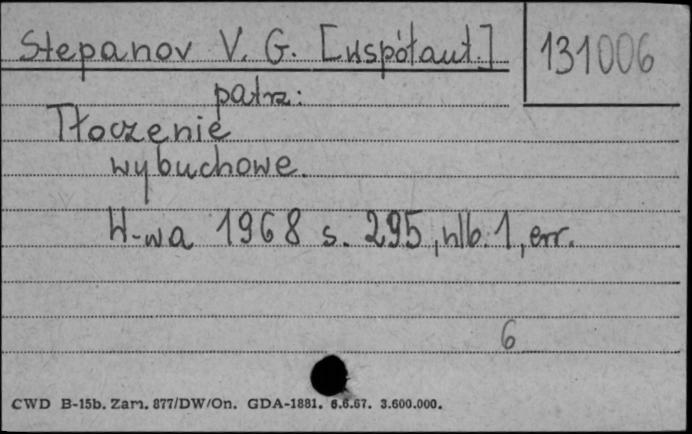 Stepanov V. G. [współaut.]
131006
patrz:
Tłoczenie
wybuchowe.
W-wa 1968 s. 295, nlb. 1, err.
6
CWD B-15b. Zam. 877/DW/On. GDA-1881. 6.6.67. 3.600.000.